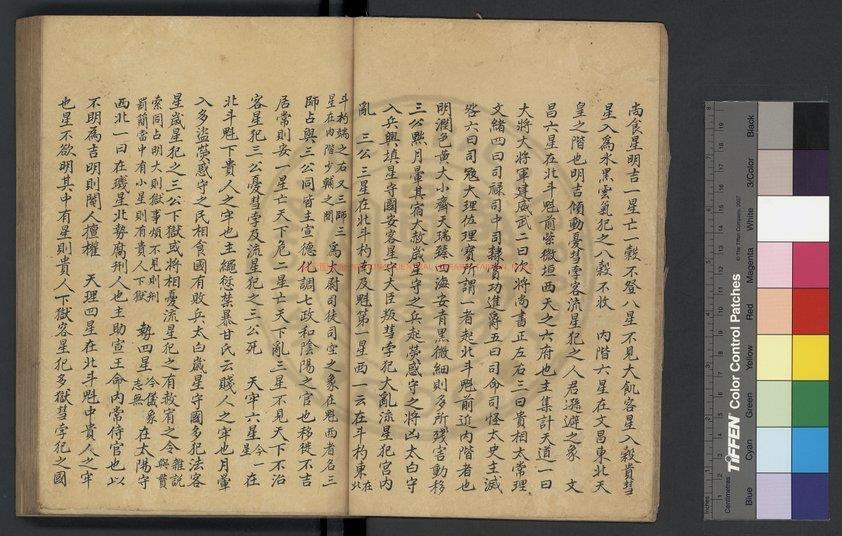 尚食星明吉一星亡一穀不登八星不見大飢客星入穀貴彗
星入為水黑雲氣犯之八穀不收　內階六星在文昌東北天
皇之階也明吉傾動憂彗孛客流星犯之人君遜避之象　文
昌六星在北斗魁前紫微垣西天之六府也主集計天道一曰
大將大將軍建威武二曰次將尚書正左右三曰貴相太常理
文緒四曰司祿司中司隸賞功進爵五曰司命司怪太史主滅
咎六曰司冠大理佐理寶所謂一者起北斗魁前近內階者也
明潤色黃大小齊天瑞臻四海安青黑微細則多所殘害動移
三公黜月暈其宿大赦歲星守之兵起熒惑守之將凶太白守
入兵興填星守國安客星守大臣叛彗孛犯大亂流星犯宮內
亂　三公三星在北斗杓東及魁第一星西一云在斗杓東在北
斗杓端之右又三師三星在內階少輔之間　為太尉司徒司空之象在魁西者名三
師占與三公同皆主宣德化調七政和陰陽之官也移徙不吉
居常則安一星亡天下危二星亡天下亂三星不見天下不治
客星犯三公憂彗孛及流星犯之三公死　天牢六星今一星在
北斗魁下貴人之牢也主繩愆禁暴甘氏云賤人之牢也月暈
入多盜熒惑守之民相食國有敗兵太白歲星守國多犯法客
星歲星犯之三公下獄或將相憂流星犯之有赦宥之令雜說與貫
索同占明大則獄事煩不見則刑罰簡當中有小星則有貴人下獄　勢四星今儀象志無在太陽守
西北一曰在璣星北勢腐刑人也主助宣王命內常侍官也以
不明為吉明則閹人擅權　天理四星在北斗魁中貴人之牢
也星不欲明其中有星則貴人下獄客星犯多獄彗孛犯之國
TIFFEN Color Control Patches
© The Tiffen Company, 2007
Blue
Cyan
Green
Yellow
Red
Magenta
White
3/Color
Black
Inches
Centimetres